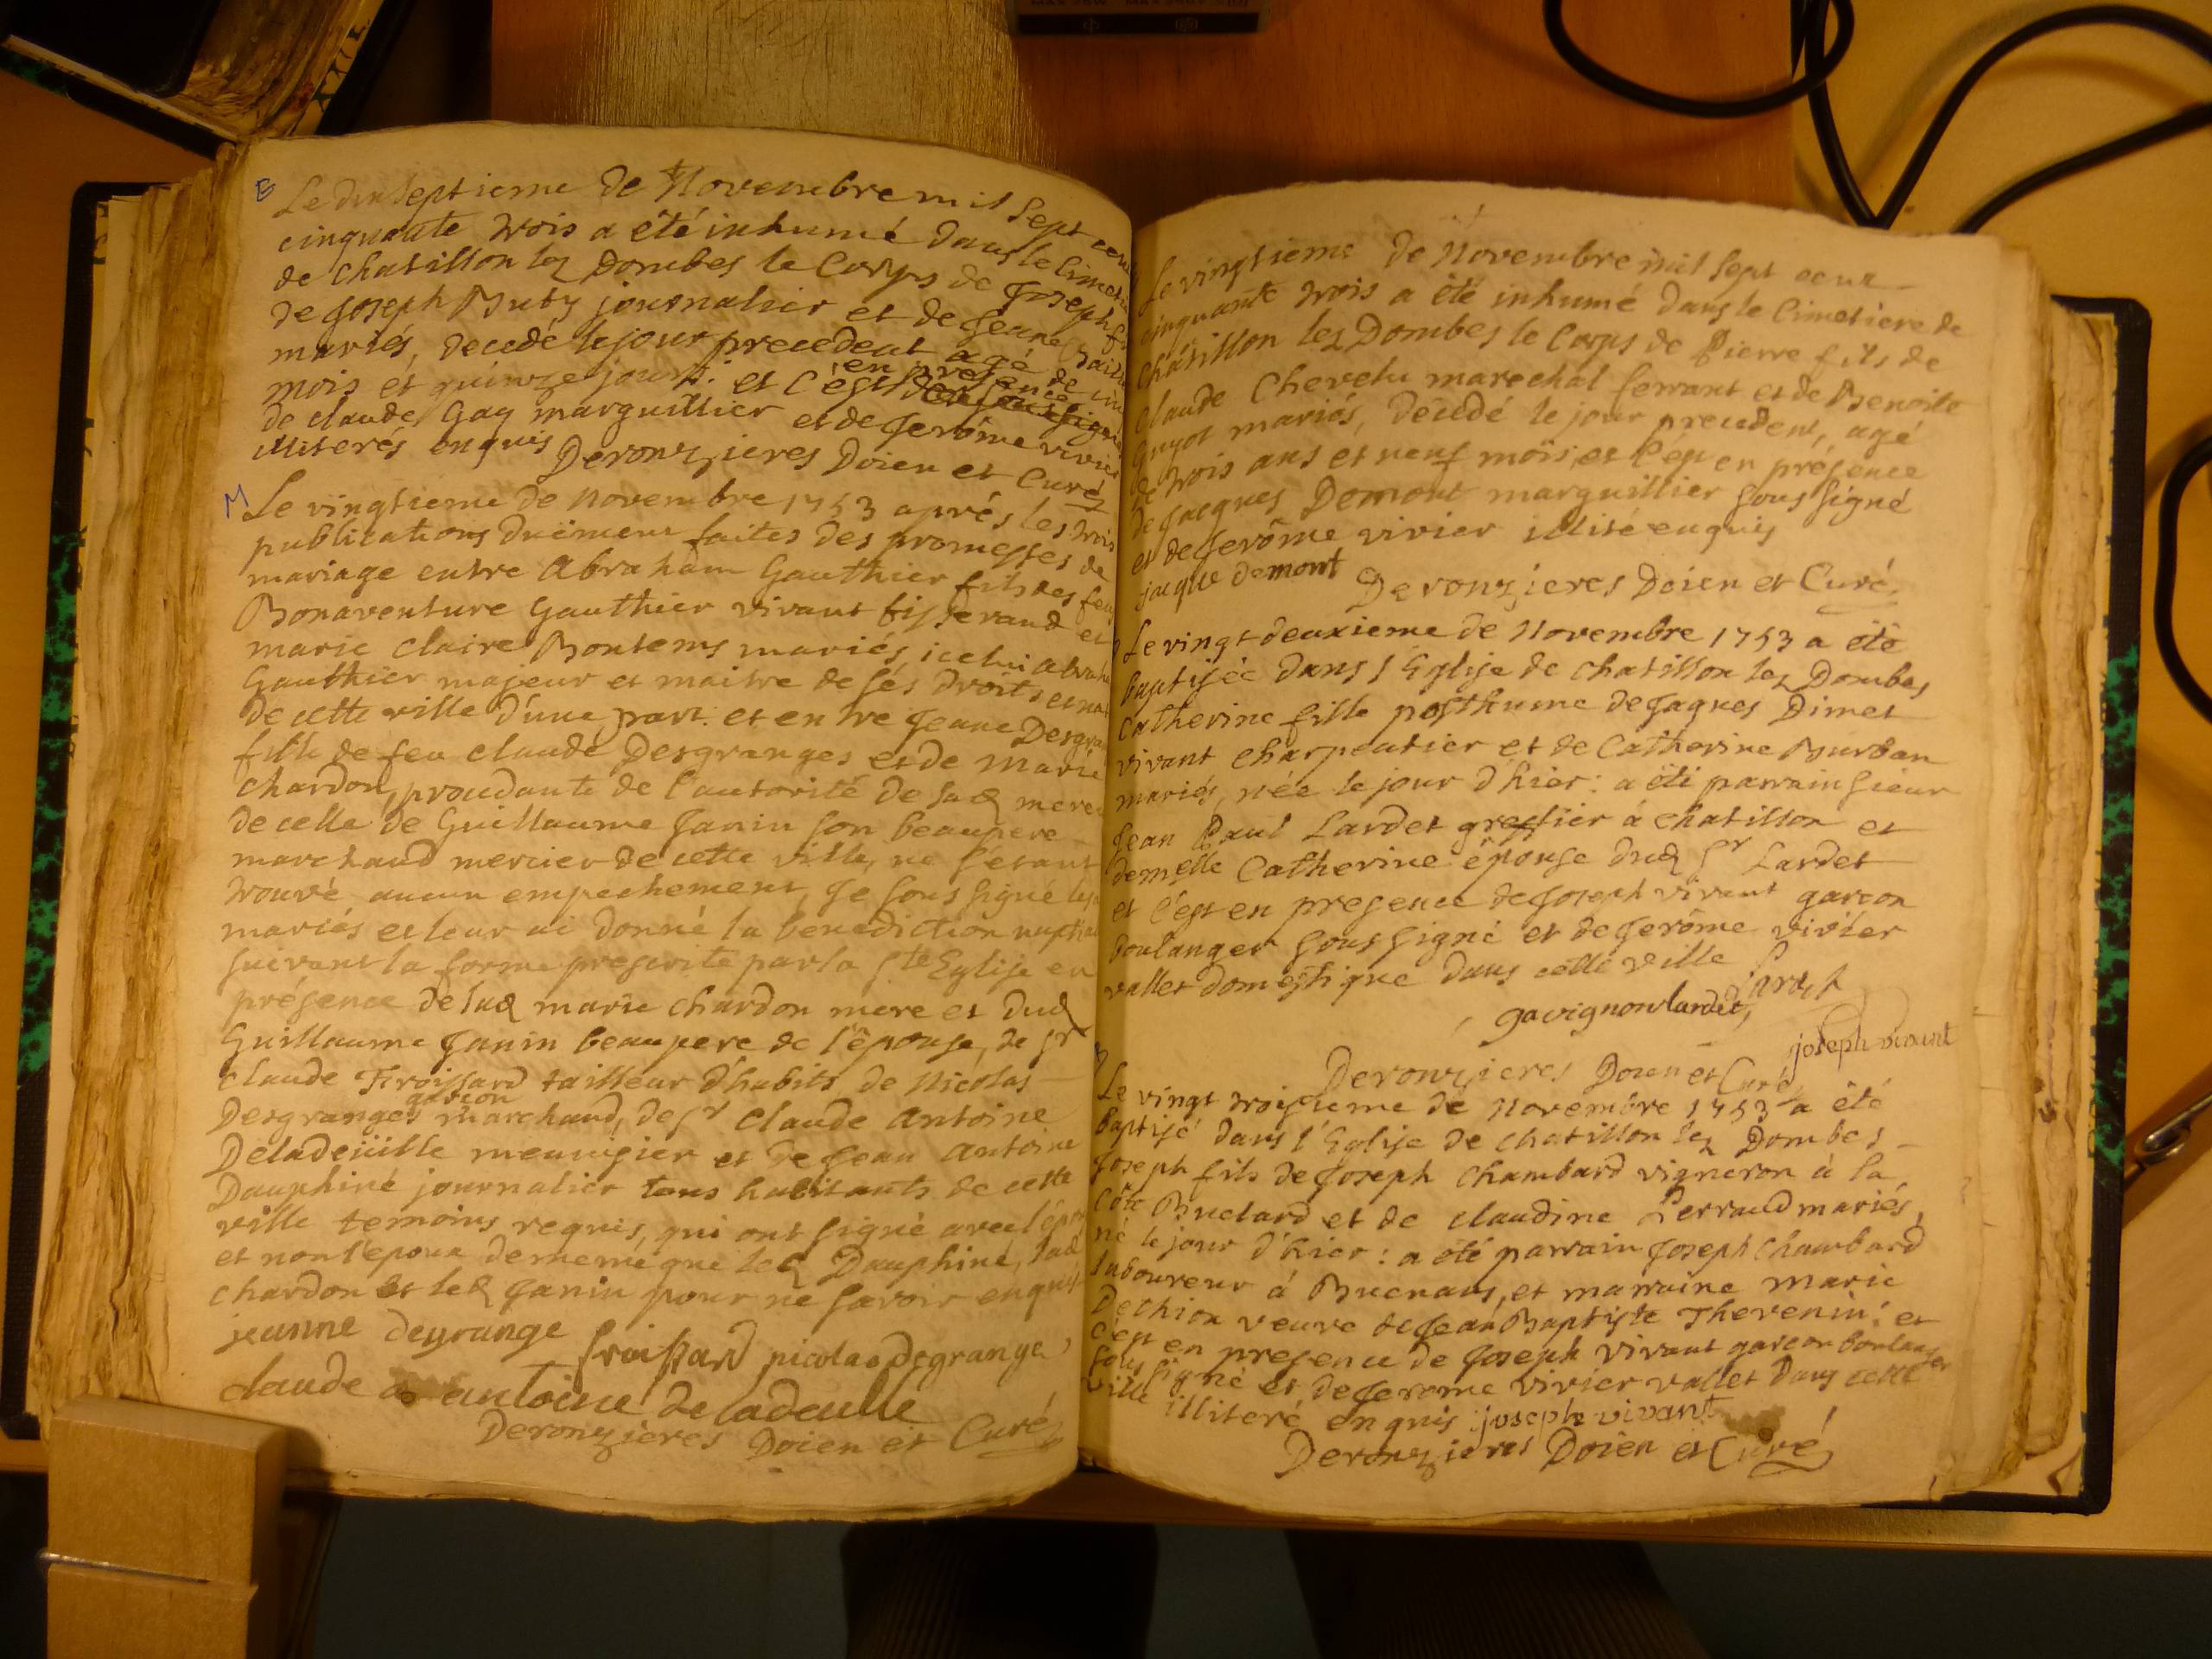 Le dixseptieme de Novembre mil sept cen
cinquante trois a été inhumé dans le Cimeti
de chatillon lez Dombes le Corps de Joseph fi
de Joseph Buty journalier et de Jeanne
mariés, decedé le jour precedent agé de un
mois et quinze jours: et c'est en presence
de claude Gay marguillier et de Jerôme vivier
illiterés enquis Deronzieres Doien et Curé
M Le vingtieme de Novembre 1753 aprés les trois
publications duëment faites des promesses de
mariage entre Abraham Gauthier fils des feu
Bonaventure Gauthier vivant tisserand et
marie Claire Bontems mariés, icelui Abraha
Gauthier majeur et maitre de sés droits et na
de cette ville d'une part. et entre Jeane Desgra
fille de feu Claude Desgranges et de Marie
chardon, proudante de l'autorité de lad mere
de celle de Guillaume Janin son beaupere
marchand mercier de cette ville, ne s'étant
trouvé aucun empechement, Je soussigné les
mariés et leur ai donné la benediction nuptia
suivant la forme prescrite par la Ste Eglise en
présence de lad marie chardon mere et dud
Guillaume Janin beaupere de l'épouse, de sr
Claude Froissard tailleur d'habits de Nicolas
garçon
Desgranges marchand, de sr Claude Antoine
Deladeüille meunisier et de Jean Antoine
Dauphiné journalier tous habitants de cette
ville temoins requis, qui ont signé avec l'épou
et non l'epoux demême que led Dauphiné, lad
chardon et led Janin pour ne savoir enquis
jeanne degrange froissard nicolas degrange
claude antoine deladeulle
Deronzieres Doien et Curé
Le vingtieme de Novembre mil sept cent
cinquante trois a été inhumé dans le Cimetiere de
Châtillon lez Dombes le Corps de Pierre fils de
Claude Chevelu marechal ferrant et de Benoite
Guyot mariés, décedé le jour precedent, agé
de trois ans et neuf mois, et c'est en présence
de Jacques Demont marguillier sous signé
et de Jerôme vivier illité enquis
jaque demont Deronzieres Doien et Curé
Le vingt-deuxieme de Novembre 1753 a été
baptisée dans l'Eglise de chatillon lez Dombes
Catherine fille posthume de Jaques Dimet
vivant Charpentier et de Catherine Burban
mariés, née le jour d'hier: a été parrain Sieur
Jean Paul Lardet greffier á chatillon et
demelle Catherine épouse dud Sr Lardet
et c'est en presence de Joseph vivant garcon
boulanger sous signé et de Jerôme vivier
vallet domestique dans cette ville Lardet
gavignon lardet,
joseph vivant
Deronzieres Doien et Curé
Le vingt troisieme de Novembre 1753 a été
baptisé dans l'Eglise de chatillon lez Dombes
Joseph fils de Joseph Chambard vigneron à la
Côte Buclard et de claudine Perraud mariés,
né le jour d'hier: a été parrain Joseph Chambard
laboureur à Buenans, et marraine marie
Dethion veuve de Jean Baptiste Thevenin: et
c'est en presence de Joseph vivant garcon boulanger
sous signé et de Jerome vivier vallet dans cette
ville illiteré enquis joseph vivant
Deronzieres Doien et Curé